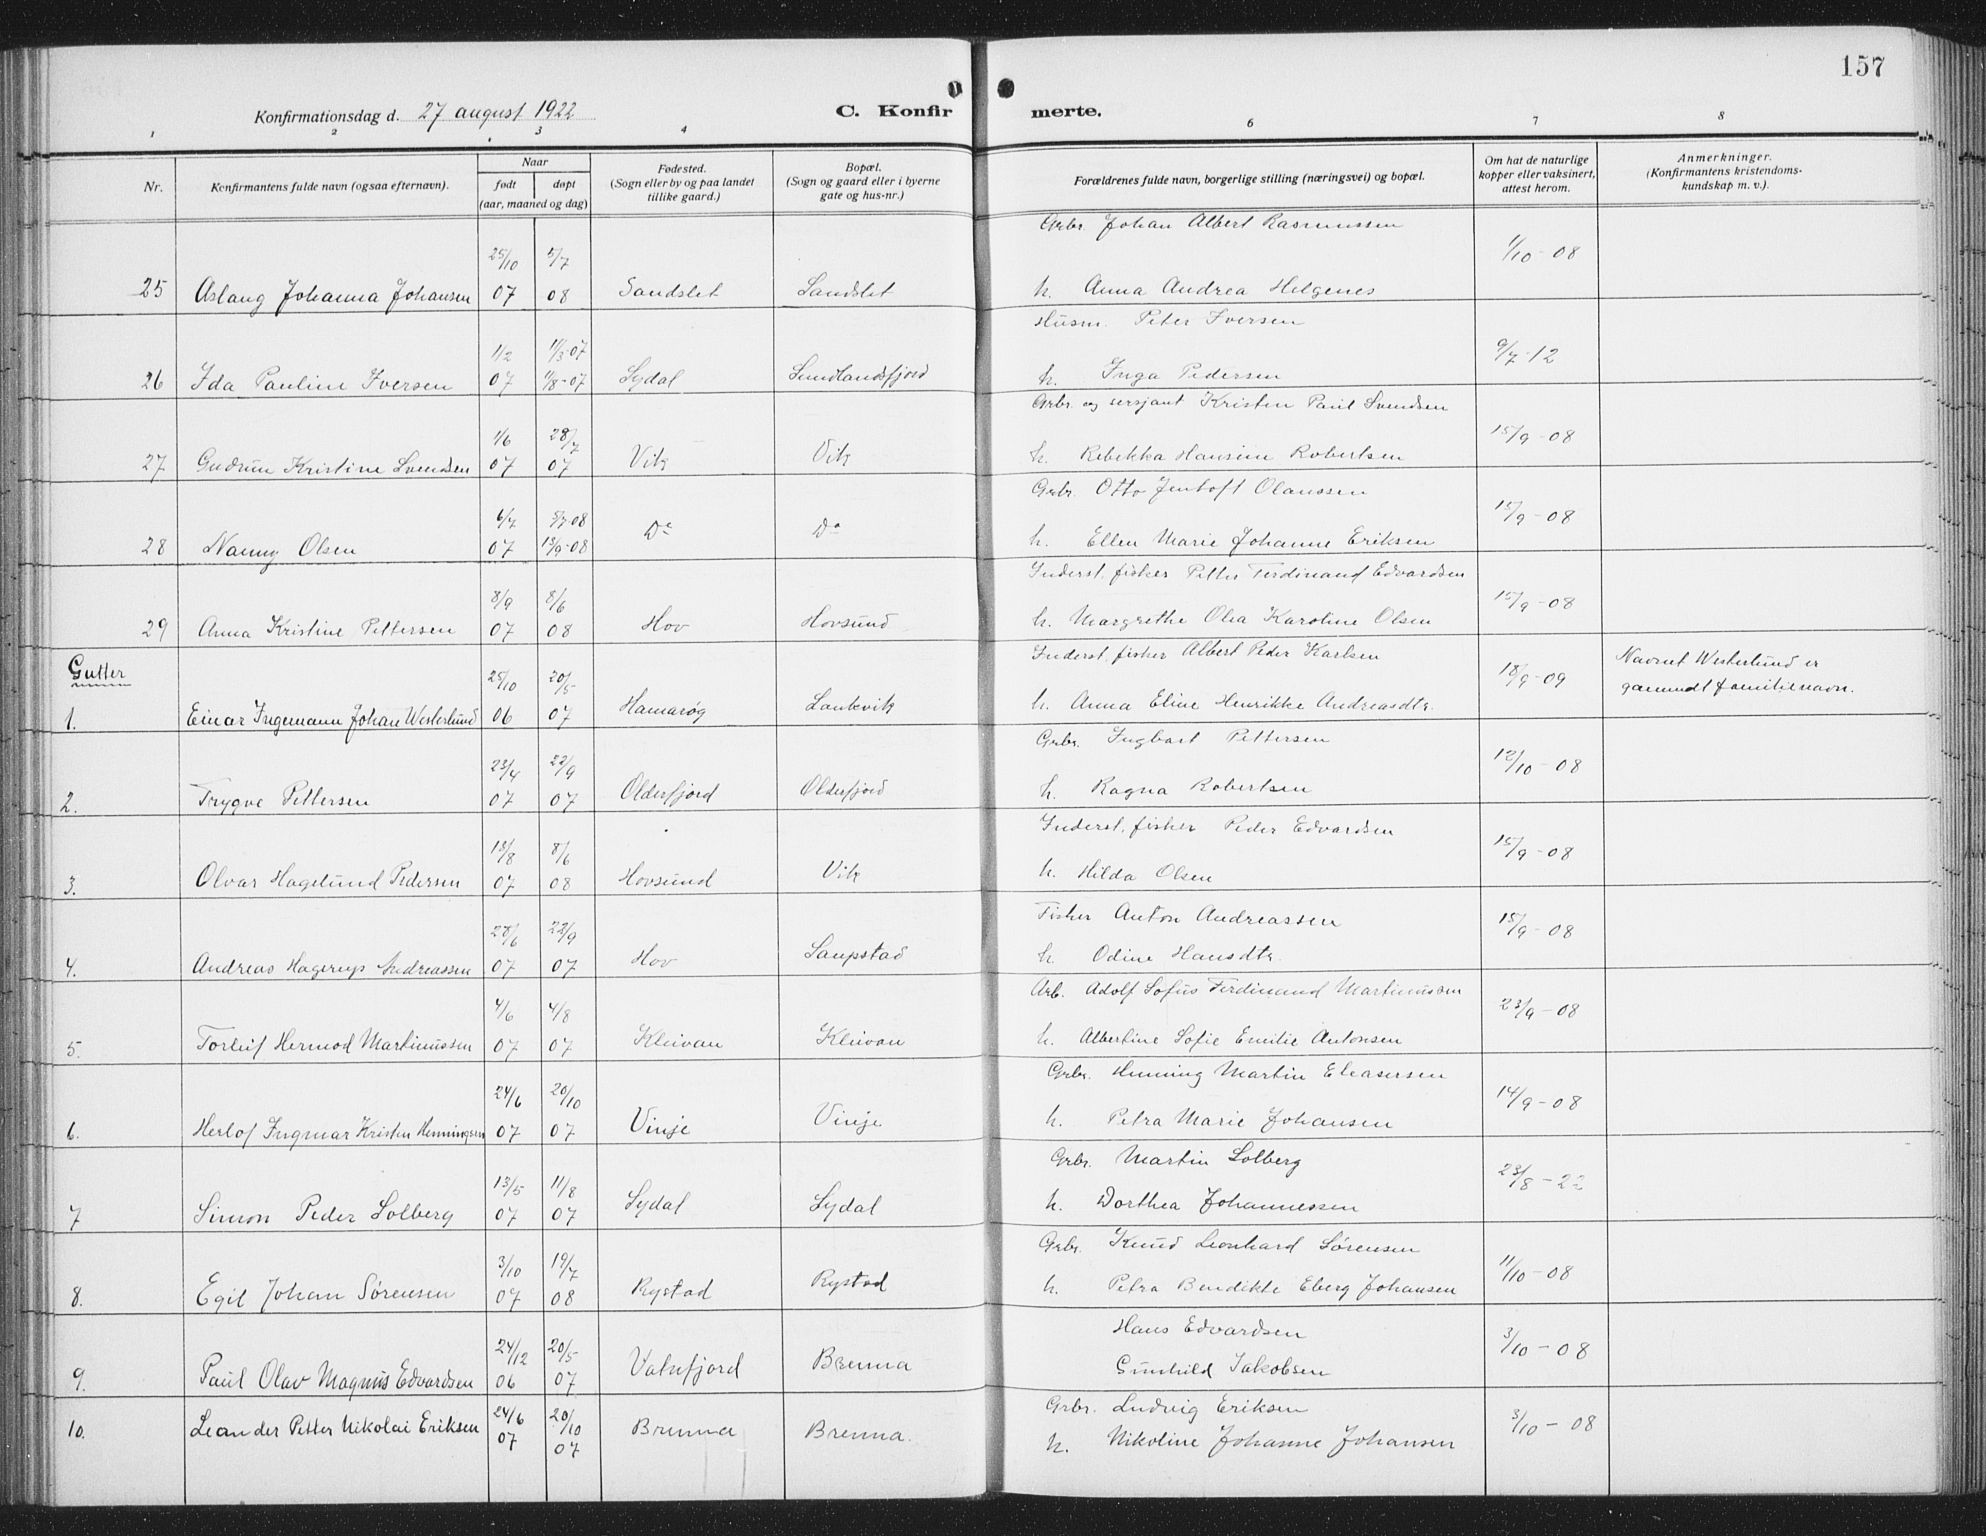 157
Konfirmationsdag d. 27 august 1922
C. Konfirmerte.
1 2 3 4 5 6 7 8
Nr.
Konfirmantens fulde navn (ogsaa efternavn).
Naar
født døpt
(aar, maaned og dag)
Fødested.
(Sogn eller by og paa landet
tillike gaard.)
Bopæl.
(Sogn og gaard eller i byerne
gate og hus-nr.)
Forældrenes fulde navn, borgerlige stilling (næringsvei) og bopæl.
Om hat de naturlige
kopper eller vaksinert,
attest herom.
Anmerkninger.
(Konfirmantens kristendoms-
kundskap m. v.).
25 Aslaug Johanna Johansen 25/10 07 5/7 08 Sandslet Sandslet Grbr. Johan Albert Rasmussen
h. Anna Andrea Helgenes 1/10-08
26 Ida Pauline Iversen 1/2 07 11/3-07 11/8-07 Sydal Sundlandsfjord Husm. Peter Iversen
h. Inga Pedersen 9/7-12
27 Gudrun Kristine Svendsen 1/6 07 28/7 07 Vik Vik Grbr. og sersjant Kristen Paul Svendsen
h. Rebekka Hansine Robertsen 15/9-08
28 Nanny Olsen 6/7 07 5/7-08 13/9-08 Do Do Grbr. Otto Jentoft Olaussen
h. Ellen Marie Johanne Eriksen 15/9-08
29 Anna Kristine Pettersen 8/9 07 8/6 08 Hov Hovsund Inderst, fisker Petter Ferdinand Edvardsen
h. Margrethe Olea Karoline Olsen 15/9-08
Gutter
1. Einar Ingemann Johan Westerlund 25/10 06 20/5 07 Hamarøg Laukvik Inderst, fisker Albert Peder Karlsen
h. Anna Eline Henrikke Andreasdtr. 18/9-09 Navnet Westerlund er
gammelt familienavn.
2. Trygve Pettersen 23/4 07 22/9 07 Olderfjord Olderfjord Grbr. Ingbart Pettersen
h. Ragna Robertsen 12/10-08
3. Olvar Hagelund Pedersen 13/8 07 8/6 08 Hovsund Vik Inderst, fisker Peder Edvardsen
h. Hilda Olsen 15/9-08
4. Andreas Hagerup Andreassen 28/6 07 22/9 07 Hov Saupstad Fisker Anton Andreassen
h. Odine Hansdtr. 15/9-08
5. Torleif Hermod Martinussen 4/6 07 4/8 07 Kleivan Kleivan Arb. Adolf Sofus Ferdinand Martinussen
h. Albertine Sofie Emilie Antonsen 23/9-08
6. Herlof Ingmar Kristen Henningsen 24/6 07 20/10 07 Vinje Vinje Grbr. Henning Martin Eleasersen
h. Petra Marie Johansen 14/9-08
7 Simon Peder Solberg 13/5 07 11/8 07 Sydal Sydal Grbr. Martin Solberg
h. Dorthea Johannessen 23/8-22
8. Egil Johan Sørensen 3/10 07 19/7 08 Rystad Rystad Grbr. Knud Leonhard Sørensen
h. Petra Bendikte Eberg Johansen 11/10-08
9. Paul Olav Magnus Edvardsen 24/12 06 20/5 07 Vatnfjord Brenna Hans Edvardsen
Gunhild Jakobsen 3/10-08
10. Leander Petter Nikolai Eriksen 24/6 07 20/10 07 Brenna Brenna. Grbr. Ludvig Eriksen
h. Nikoline Johanne Johansen 3/10-08